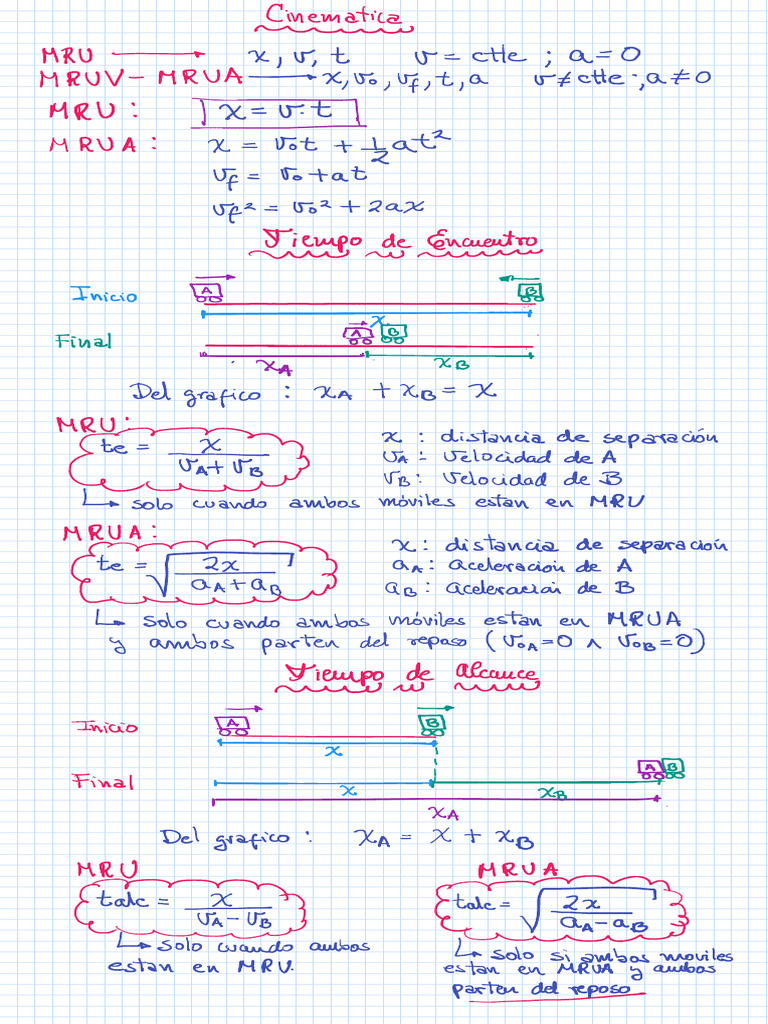 Cinematica
MRU → x, v, t   v = ctte ; a = 0
MRUV - MRUA → x, v₀, v_f, t, a   v ≠ ctte ; a ≠ 0
MRU : x = v·t
MRUA : x = v₀t + 1/2 at²
v_f = v₀ + at
v_f² = v₀² + 2ax
Tiempo de Encuentro
A B
Inicio
x
Final A B
x_A x_B
Del grafico : x_A + x_B = x
MRU:
te = x / (v_A + v_B)
x : distancia de separación
v_A : velocidad de A
v_B : velocidad de B
↳ solo cuando ambos móviles estan en MRU
MRUA:
te = √(2x / (a_A + a_B))
x : distancia de separación
a_A : Aceleración de A
a_B : Aceleración de B
↳ solo cuando ambos móviles estan en MRUA
y ambos parten del repaso (v₀A = 0 ∧ v₀B = 0)
Tiempo de Alcance
Inicio A B
x
Final A B
x x_B
x_A
Del grafico : x_A = x + x_B
MRU
talc = x / (v_A - v_B)
↳ solo cuando ambos
estan en MRU.
MRUA
talc = √(2x / (a_A - a_B))
↳ solo si ambos moviles
estan en MRUA y ambos
parten del reposo